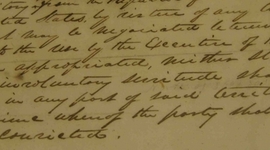 the States, by virtue of any
may be negotiated
to the use by the Executive of
appropriated, neither
involuntary servitude sha
in any part of said territ
crime whereof the party shal
convicted.